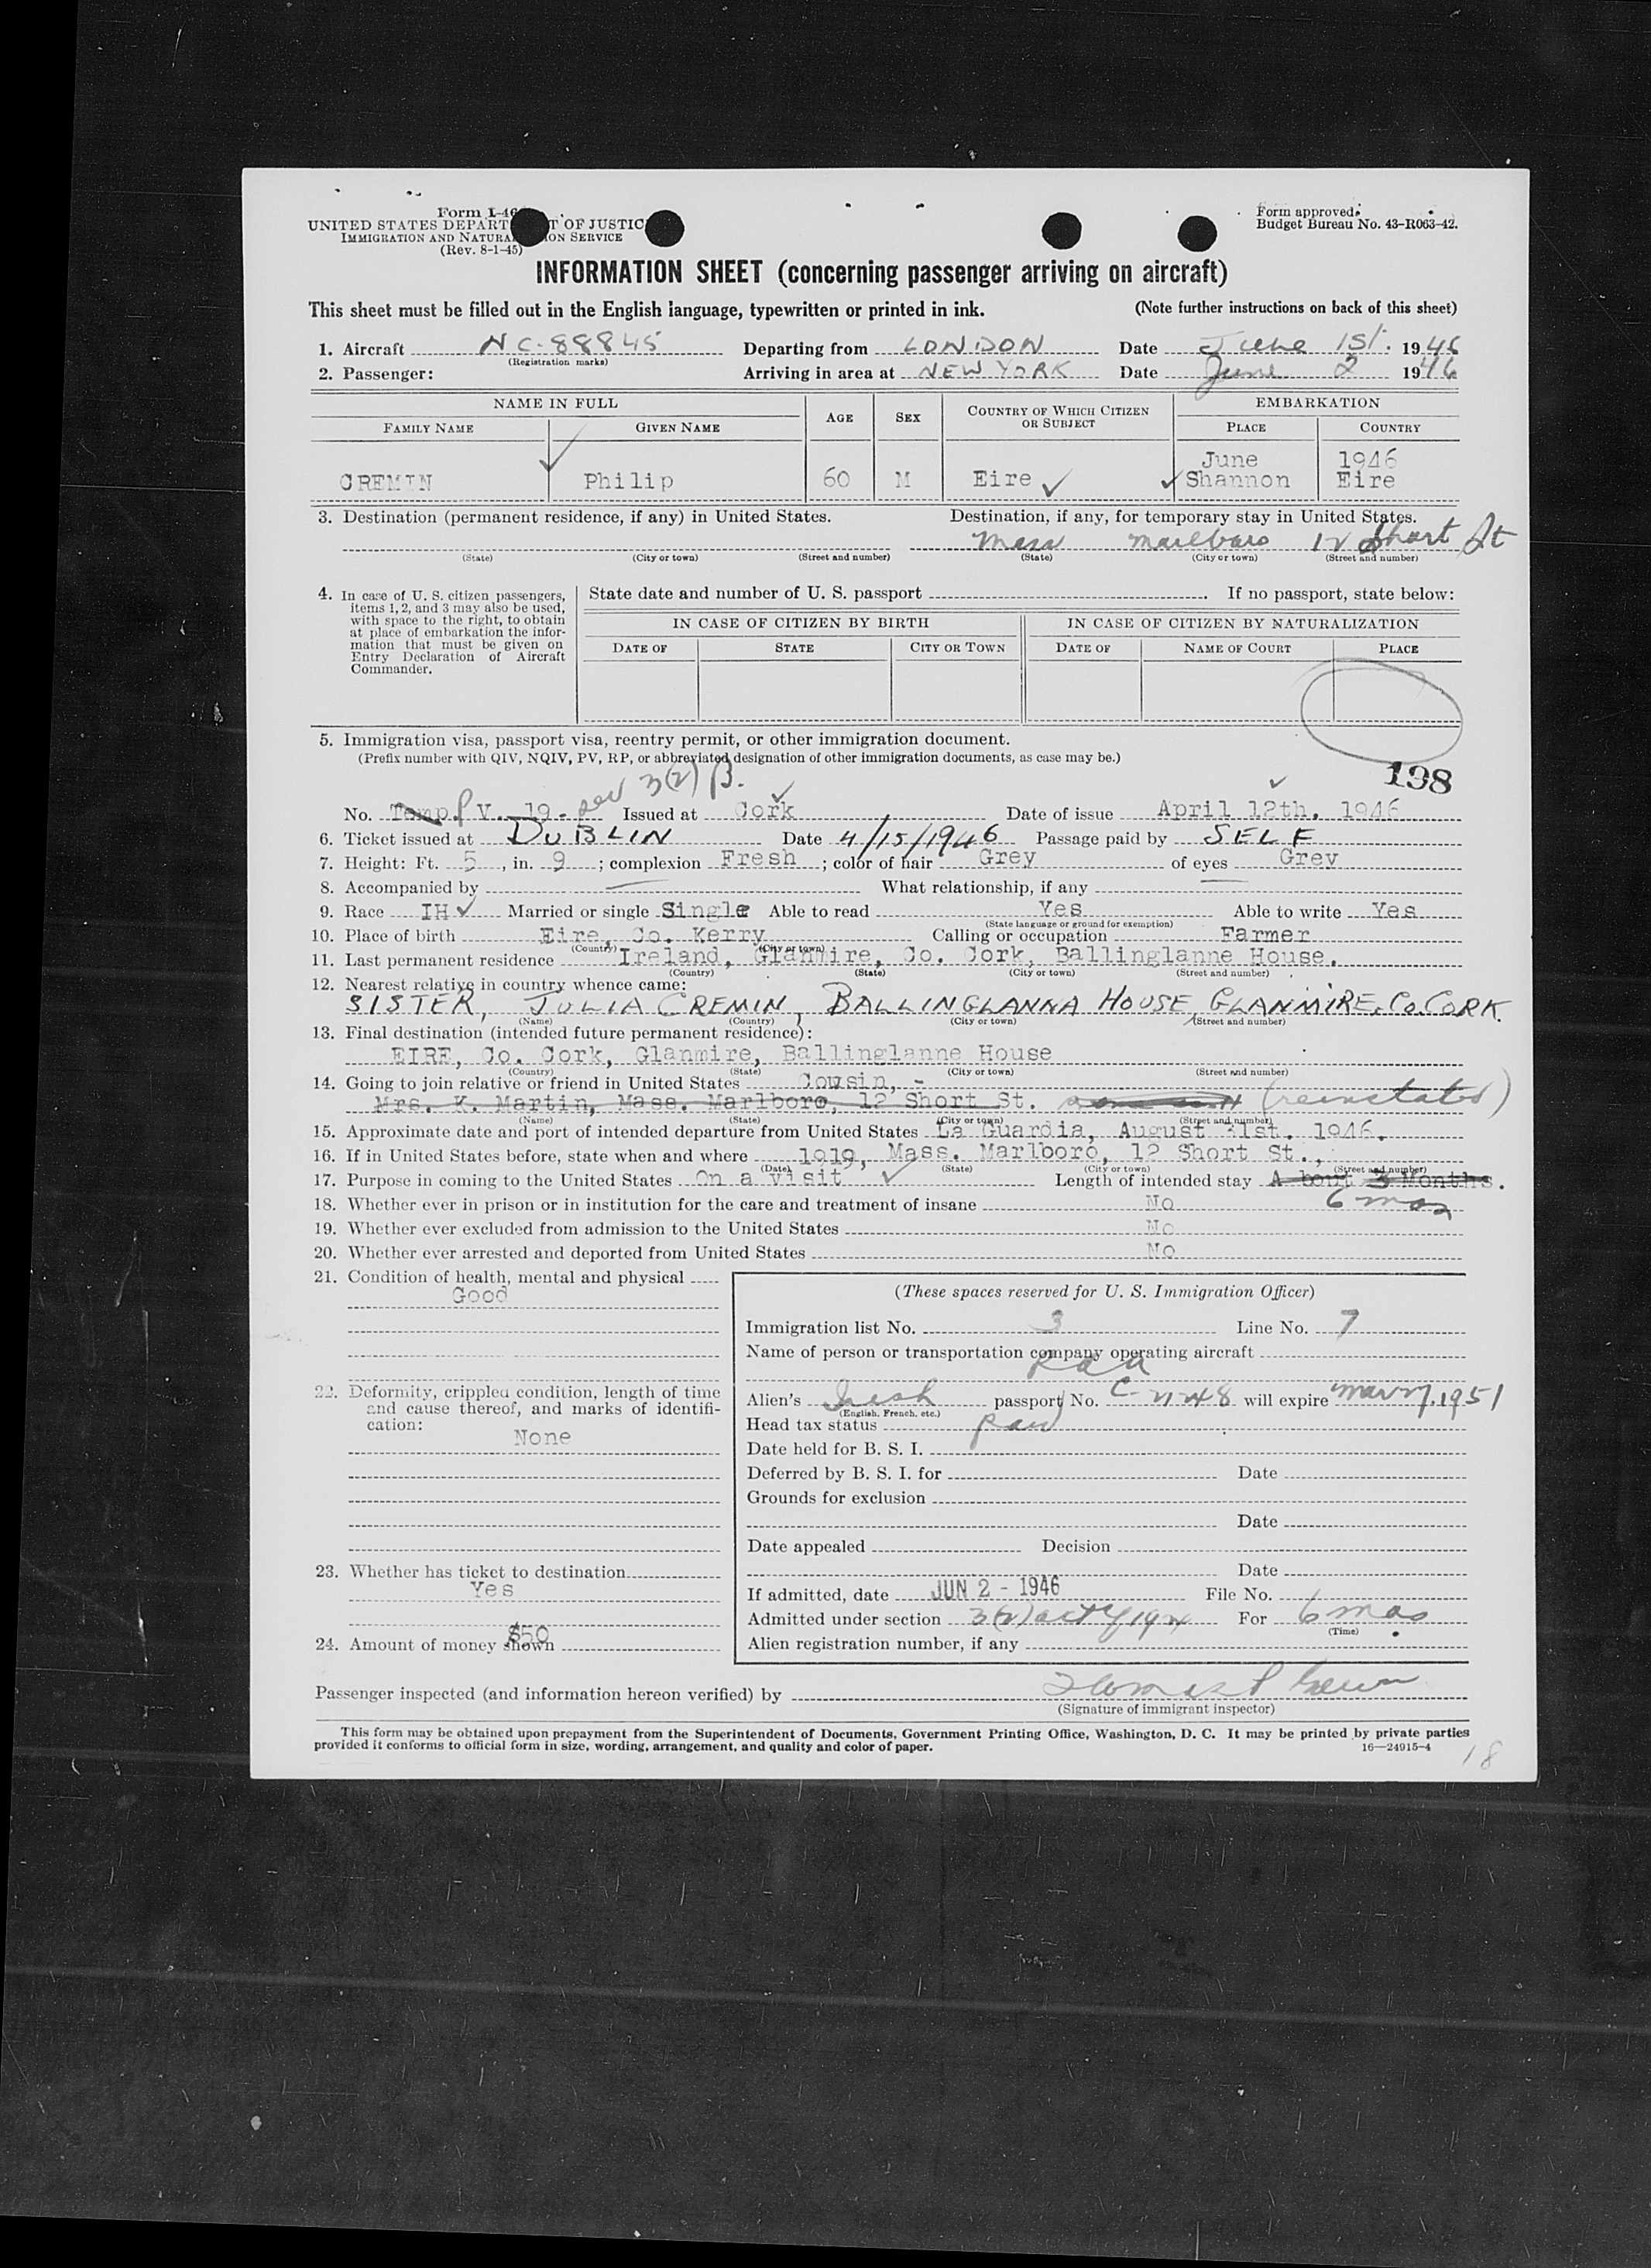 Form I-46
UNITED STATES DEPART T OF JUSTIC
IMMIGRATION AND NATURA ION SERVICE
(Rev. 8-1-45)
Form approved.
Budget Bureau No. 43-R063-42.
INFORMATION SHEET (concerning passenger arriving on aircraft)
This sheet must be filled out in the English language, typewritten or printed in ink. (Note further instructions on back of this sheet)
1. Aircraft NC-88845 Departing from LONDON Date June 1st. 1946
(Registration marks)
2. Passenger: Arriving in area at NEW YORK Date June 2 1946
NAME IN FULL AGE SEX COUNTRY OF WHICH CITIZEN OR SUBJECT EMBARKATION
FAMILY NAME GIVEN NAME PLACE COUNTRY
June 1946
CREMIN Philip 60 M Eire Shannon Eire
3. Destination (permanent residence, if any) in United States. Destination, if any, for temporary stay in United States.
Mass Marlboro 12 Short St
(State) (City or town) (Street and number) (State) (City or town) (Street and number)
4. In case of U. S. citizen passengers, items 1, 2, and 3 may also be used, with space to the right, to obtain at place of embarkation the information that must be given on Entry Declaration of Aircraft Commander.
State date and number of U. S. passport If no passport, state below:
IN CASE OF CITIZEN BY BIRTH IN CASE OF CITIZEN BY NATURALIZATION
DATE OF STATE CITY OR TOWN DATE OF NAME OF COURT PLACE
5. Immigration visa, passport visa, reentry permit, or other immigration document.
(Prefix number with QIV, NQIV, PV, RP, or abbreviated designation of other immigration documents, as case may be.)
198
No. Temp. P V. 19 - sec 3(2) B. Issued at Cork Date of issue April 12th. 1946
6. Ticket issued at DUBLIN Date 4/15/1946 Passage paid by SELF
7. Height: Ft. 5, in. 9; complexion Fresh; color of hair Grey of eyes Grey
8. Accompanied by What relationship, if any
9. Race IH Married or single Single Able to read Yes Able to write Yes
(State language or ground for exemption)
10. Place of birth Eire, Co. Kerry Calling or occupation Farmer
(Country) (City or town)
11. Last permanent residence Ireland, Glanmire, Co. Cork, Ballinglanne House.
(Country) (State) (City or town) (Street and number)
12. Nearest relative in country whence came:
SISTER, JULIA CREMIN, BALLINGLANNA HOUSE, GLANMIRE, Co. CORK.
(Name) (Country) (City or town) (Street and number)
13. Final destination (intended future permanent residence):
EIRE, Co. Cork, Glanmire, Ballinglanne House
(Country) (State) (City or town) (Street and number)
14. Going to join relative or friend in United States Cousin, -
Mrs. K. Martin, Mass. Marlboro, 12 Short St. (reinstated)
(Name) (State) (City or town) (Street and number)
15. Approximate date and port of intended departure from United States La Guardia, August 31st. 1946.
16. If in United States before, state when and where 1919, Mass. Marlboro, 12 Short St.,
(Date) (State) (City or town) (Street and number)
17. Purpose in coming to the United States On a visit Length of intended stay About 3 Months.
6 mos
18. Whether ever in prison or in institution for the care and treatment of insane No
19. Whether ever excluded from admission to the United States No
20. Whether ever arrested and deported from United States No
21. Condition of health, mental and physical
Good
22. Deformity, crippled condition, length of time and cause thereof, and marks of identification:
None
23. Whether has ticket to destination
Yes
24. Amount of money shown $50
(These spaces reserved for U. S. Immigration Officer)
Immigration list No. 3 Line No. 7
Name of person or transportation company operating aircraft
Alien's Irish passport No. will expire 1951
(English, French, etc.)
Head tax status Paid
Date held for B. S. I.
Deferred by B. S. I. for Date
Grounds for exclusion
Date
Date appealed Decision
Date
If admitted, date JUN 2 - 1946 File No.
Admitted under section 3(2) act of 1924 For 6 mos
(Time)
Alien registration number, if any
Passenger inspected (and information hereon verified) by
(Signature of immigrant inspector)
This form may be obtained upon prepayment from the Superintendent of Documents, Government Printing Office, Washington, D. C. It may be printed by private parties
provided it conforms to official form in size, wording, arrangement, and quality and color of paper. 16—24915-4
18